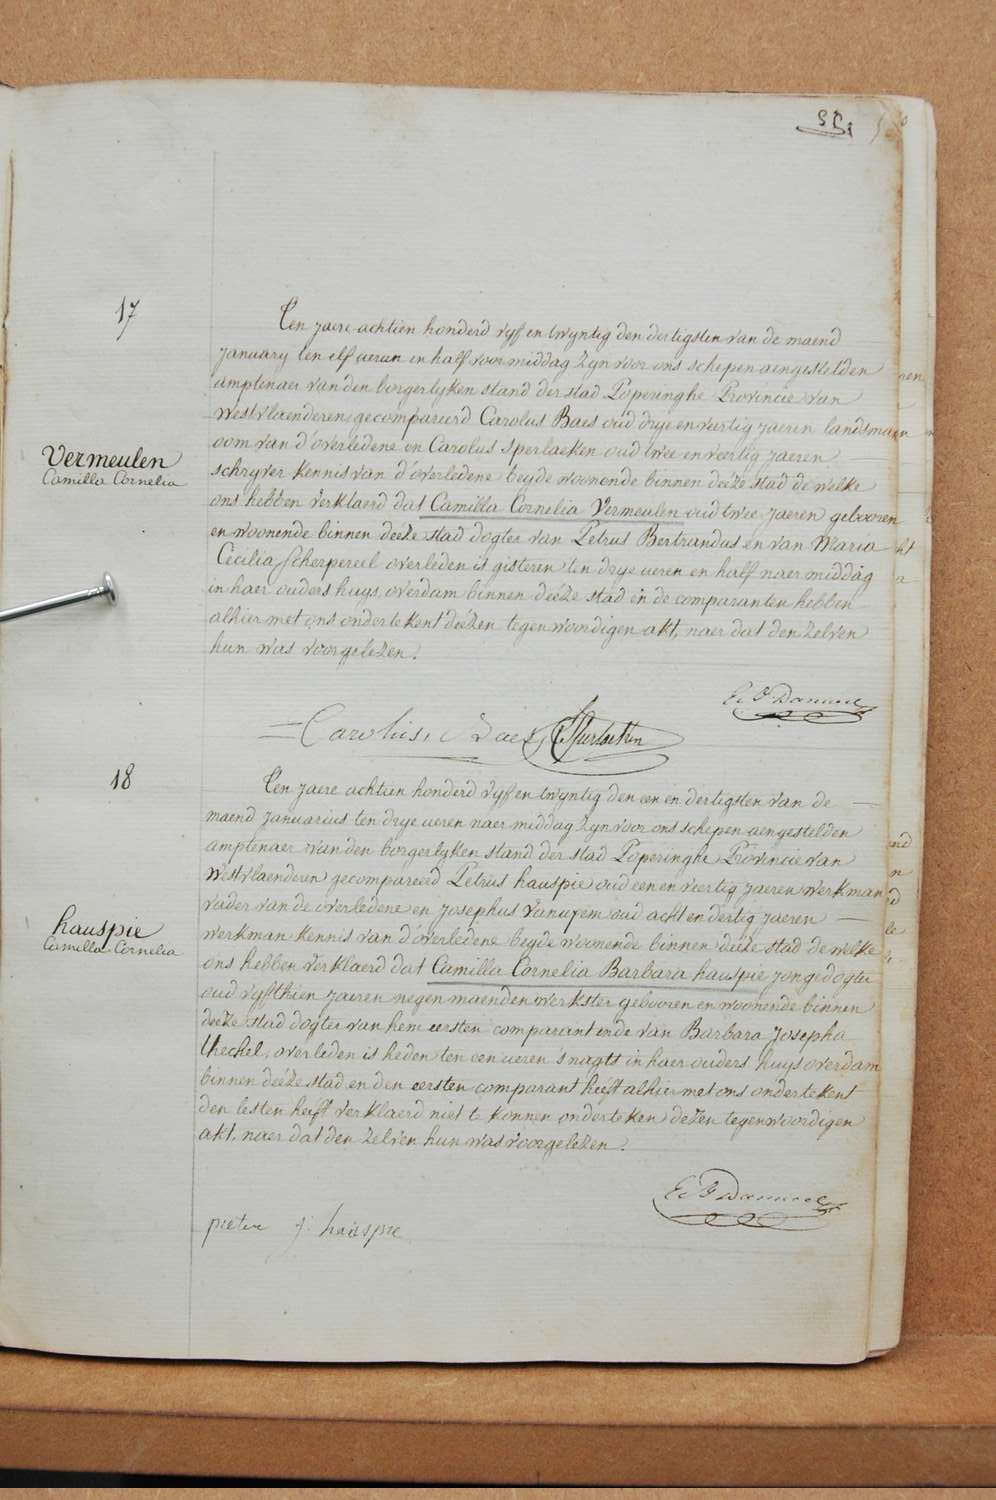 17
Ten jaere achtien honderd vyf en twyntig den dertigsten van de maend
January ten elf ueren en half voormiddag zyn voor ons schepen aengestelden
amptenaer van den borgerlyken stand der stad Poperinghe Provincie van
Westvlaenderen gecompareerd Carolus Baes oud drye en veertig jaeren landsman
oom van d'overledene en Carolus Sperlaeken oud twee en veertig jaeren
schryver kennis van d'overledene beyde woonende binnen deéze stad de welke
Vermeulen
Camilla Cornelia
ons hebben verklaerd dat Camilla Cornelia Vermeulen oud twee jaeren gebooren
en woonende binnen deéze stad dogter van Petrus Bertrandus en van Maria
Cecilia Scherpereel overleden is gisteren ten drye ueren en half naer middag
in haer ouders huys overdam binnen deéze stad en de comparanten hebben
alhier met ons onderte kent deézen tegenwoordigen akt, naer dat den zelven
hun was voorgelezen.
Carolus Baes
18
Ten jaere achtien honderd vyf en twyntig den een en dertigsten van de
maend Januarius ten drye ueren naer middag zyn voor ons schepen aengestelden
amptenaer van den borgerlyken stand der stad Poperinghe Provincie van
Westvlaenderen gecompareerd Petrus hauspie oud een en veertig jaeren werkman
vader van de overledene en Josephus Vanuxem oud acht en dertig jaeren
hauspie
Camilla Cornelia
werkman kennis van d'overledene beyde woonende binnen deeze stad de welke
ons hebben verklaerd dat Camilla Cornelia Barbara hauspie jongedogter
oud vyfthien jaeren negen maenden werkster gebooren en woonende binnen
deeze stad dogter van hem eersten comparant ende van Barbara Josepha
overleden is heden ten een ueren 's nagts in haer ouders huys overdam
binnen deéze stad en den eersten comparant heeft alhier met ons onderte kent
den lesten heeft verklaerd niet te konnen onderteken dezen tegenwoordigen
akt, naer dat den zelven hun was voorgelezen.
pieter j: hauspie